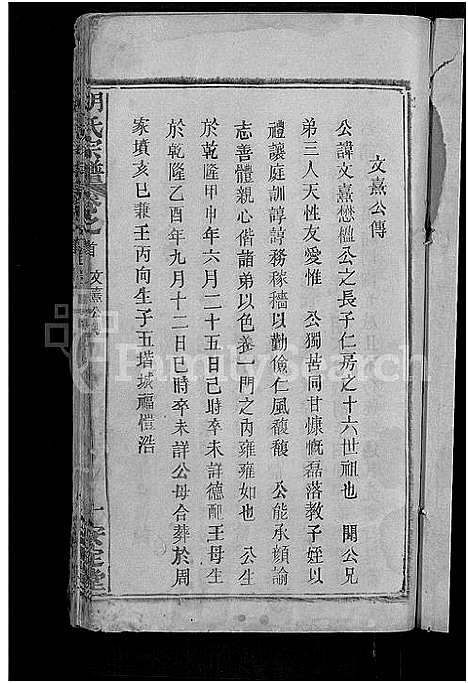 文熹公傳
公諱文熹懋楹公之長子仁房之十六世祖也　聞公兄
弟三人天性友愛惟　公獨苦同甘慷慨磊落教子姪以
禮讓庭訓諄諄務稼穡以勤儉仁風馥馥　公能承顔諭
志善體親心偕諸弟以色養一門之內雍雍如也　公生
於乾隆甲申年六月二十五日己時卒未詳德配王母生
於乾隆乙酉年九月十二日已時卒未詳公母合葬於周
家墳亥巳兼壬丙向生子五塔城福愷浩
胡氏宗譜卷之首　文熹公傳
FamilySearch